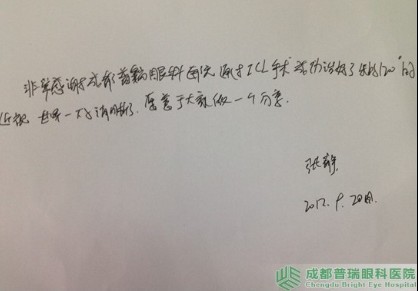 非常感谢成都普瑞眼科医院通过ICL手术成功治好了我的1200°的
近视 世界一下清晰了. 愿意于大家做一个分享.
张静
2017. 9. 20
成都普瑞眼科医院
Chengdu Bright Eye Hospital